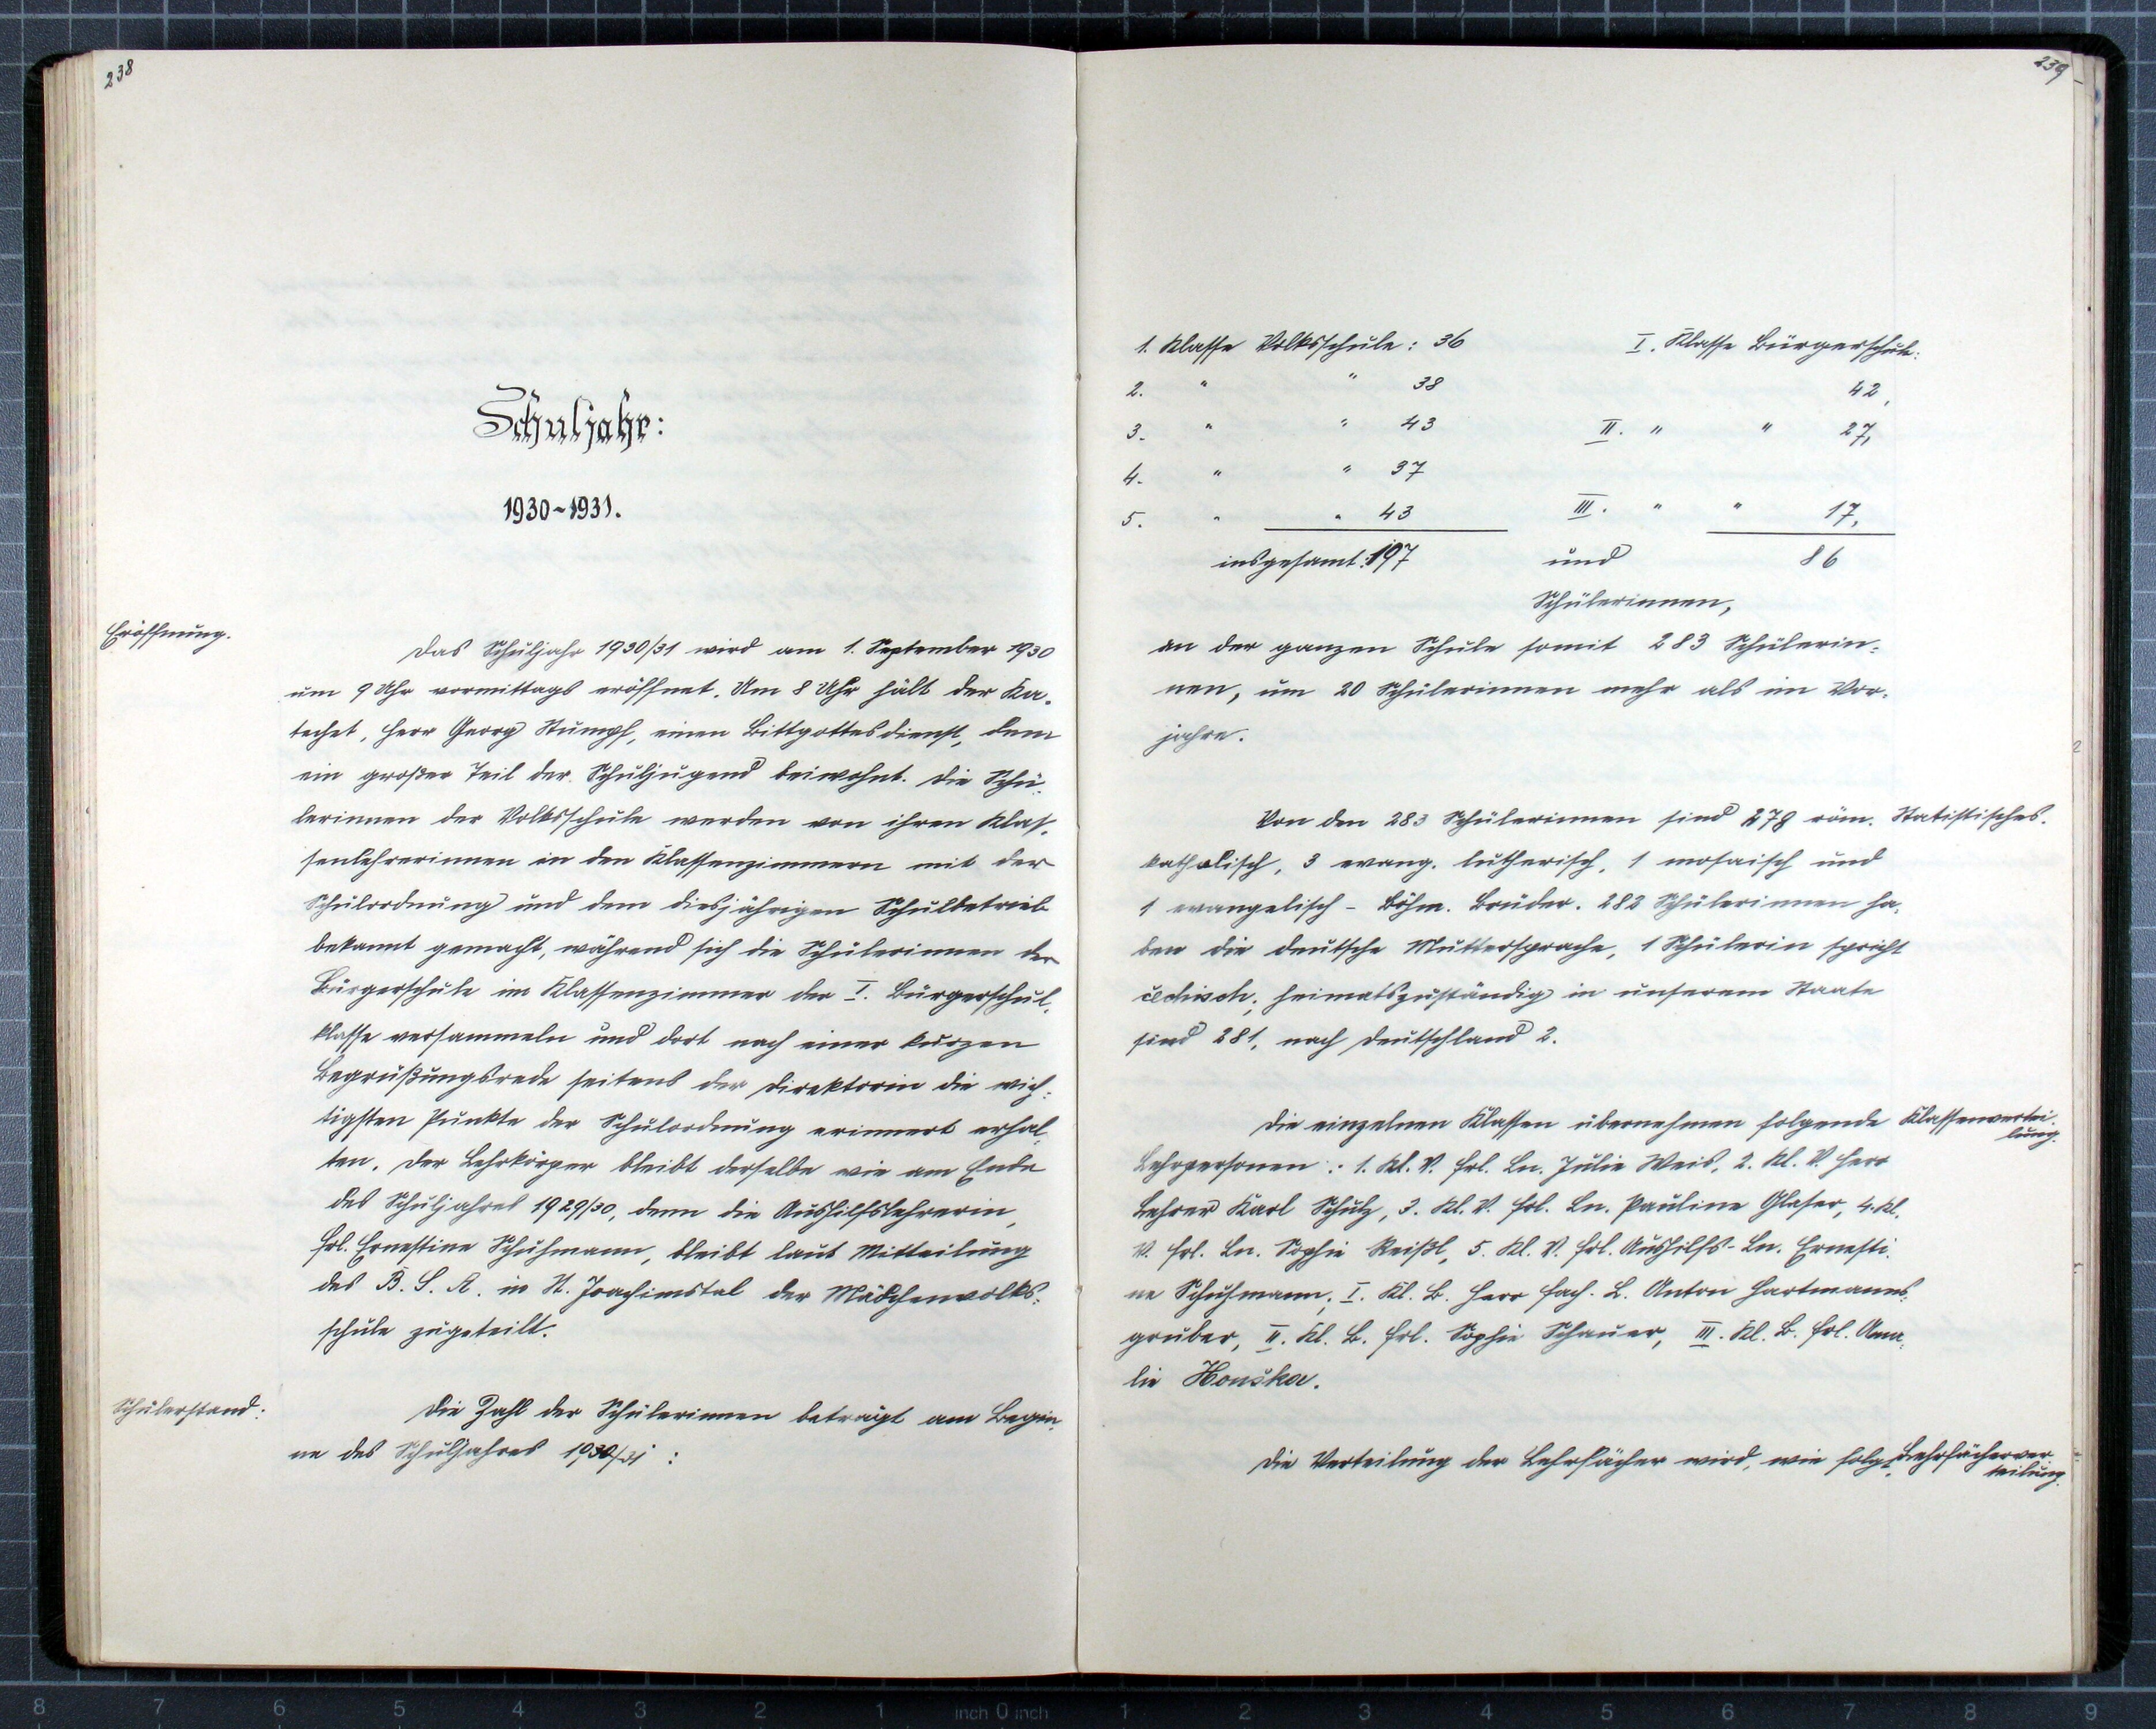 238
Schuljahr:
1930-1931.
Eröffnung.
Das Schuljahr 1930/31 wird am 1. September 1930
um 9 Uhr vormittags eröffnet. Um 8 Uhr hält der Ka-
techet, Herr Georg Stumpf, einen Bittgottesdienst, dem
ein großer Teil der Schuljugend beiwohnt. Die Schü-
lerinnen der Volksschule werden von ihren Klas-
senlehrerinnen in den Klassenzimmern mit der
Schulordnung und dem diesjährigen Schulbetrieb
bekannt gemacht, während sich die Schülerinnen der
Bürgerschule im Klassenzimmer der I. Bürgerschul-
klasse versammeln und dort nach einer kurzen
Begrüßungsrede seitens der Direktorin die wich-
tigsten Punkte der Schulordnung erinnert erhal-
ten. Der Lehrkörper bleibt derselbe wie am Ende
des Schuljahres 1929/30, denn die Aushilfslehrerin,
Frl. Ernestine Schuhmann, bleibt laut Mitteilung
des B. S. A. in St. Joachimstal der Mädchenvolks-
schule zugeteilt.
Schülerstand:
Die Zahl der Schülerinnen beträgt am Begin-
ne des Schuljahres 1930/31 :
239
1. Klasse Volksschule: 36 I. Klasse Bürgerschule:
2. " " 38 42,
3. " " 43 II. " " 27,
4. " " 37
5. " " 43 III. " " 17,
insgesamt: 197 und 86
Schülerinnen,
an der ganzen Schule somit 283 Schülerin-
nen, um 20 Schülerinnen mehr als im Vor-
jahre.
Von den 283 Schülerinnen sind 278 röm. Statistisches.
katholisch, 3 evang. lutherisch, 1 mosaisch und
1 evangelisch - Böhm. Brüder. 282 Schülerinnen ha-
ben die deutsche Muttersprache, 1 Schülerin spricht
čechisch; heimatszuständig in unserem Staate
sind 281, nach Deutschland 2.
Die einzelnen Klassen übernehmen folgende Klassenvertei-
lung.
Lehrpersonen : 1. Kl. V. Frl. Ln. Julie Weis, 2. Kl. V. Herr
Lehrer Karl Schulz, 3. Kl. V. Frl. Ln. Pauline Glaser, 4. Kl.
V. Frl. Ln. Sophie Reißl, 5. Kl. V. Frl. Aushilfs-Ln. Ernesti-
ne Schuhmann; I. Kl. B. Herr Fach. L. Anton Hartmanns-
gruber, II. Kl. B. Frl. Sophie Schauer, III. Kl. B. Frl. Ama-
lie Houška.
Die Verteilung der Lehrfächer wird, wie folgt, Lehrfächerver-
teilung.